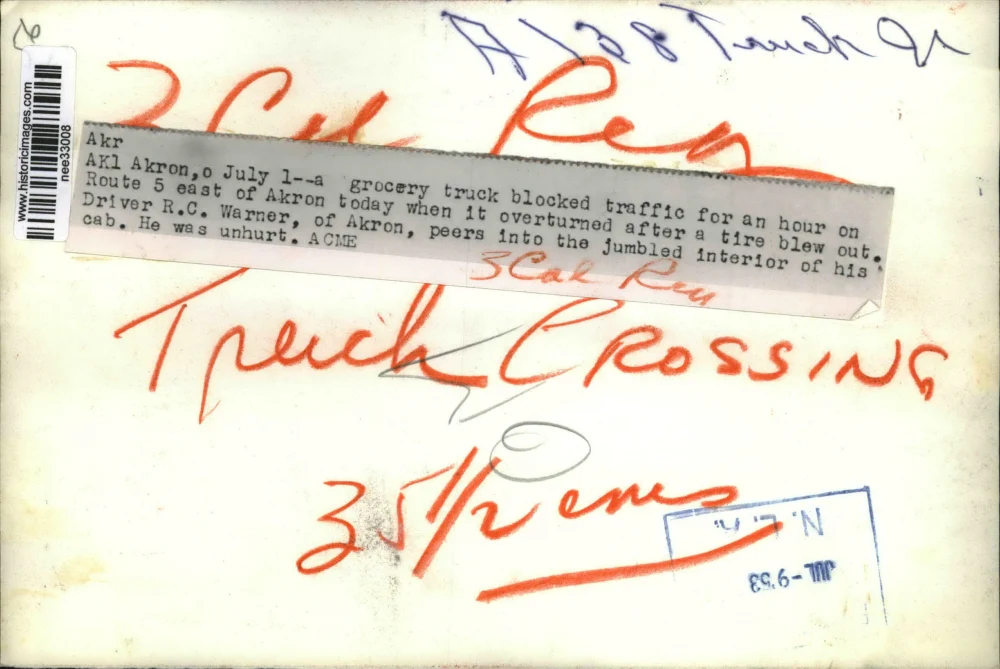 A138 Truck
www.historicimages.com
nee33008
3 Col
Akr
AK1 Akron,o July 1--a grocery truck blocked traffic for an hour on
Route 5 east of Akron today when it overturned after a tire blew out.
Driver R.C. Warner, of Akron, peers into the jumbled interior of his
cab. He was unhurt. ACME
3 Col
Truck CROSSING
35 1/2 ems
JUL -9'53